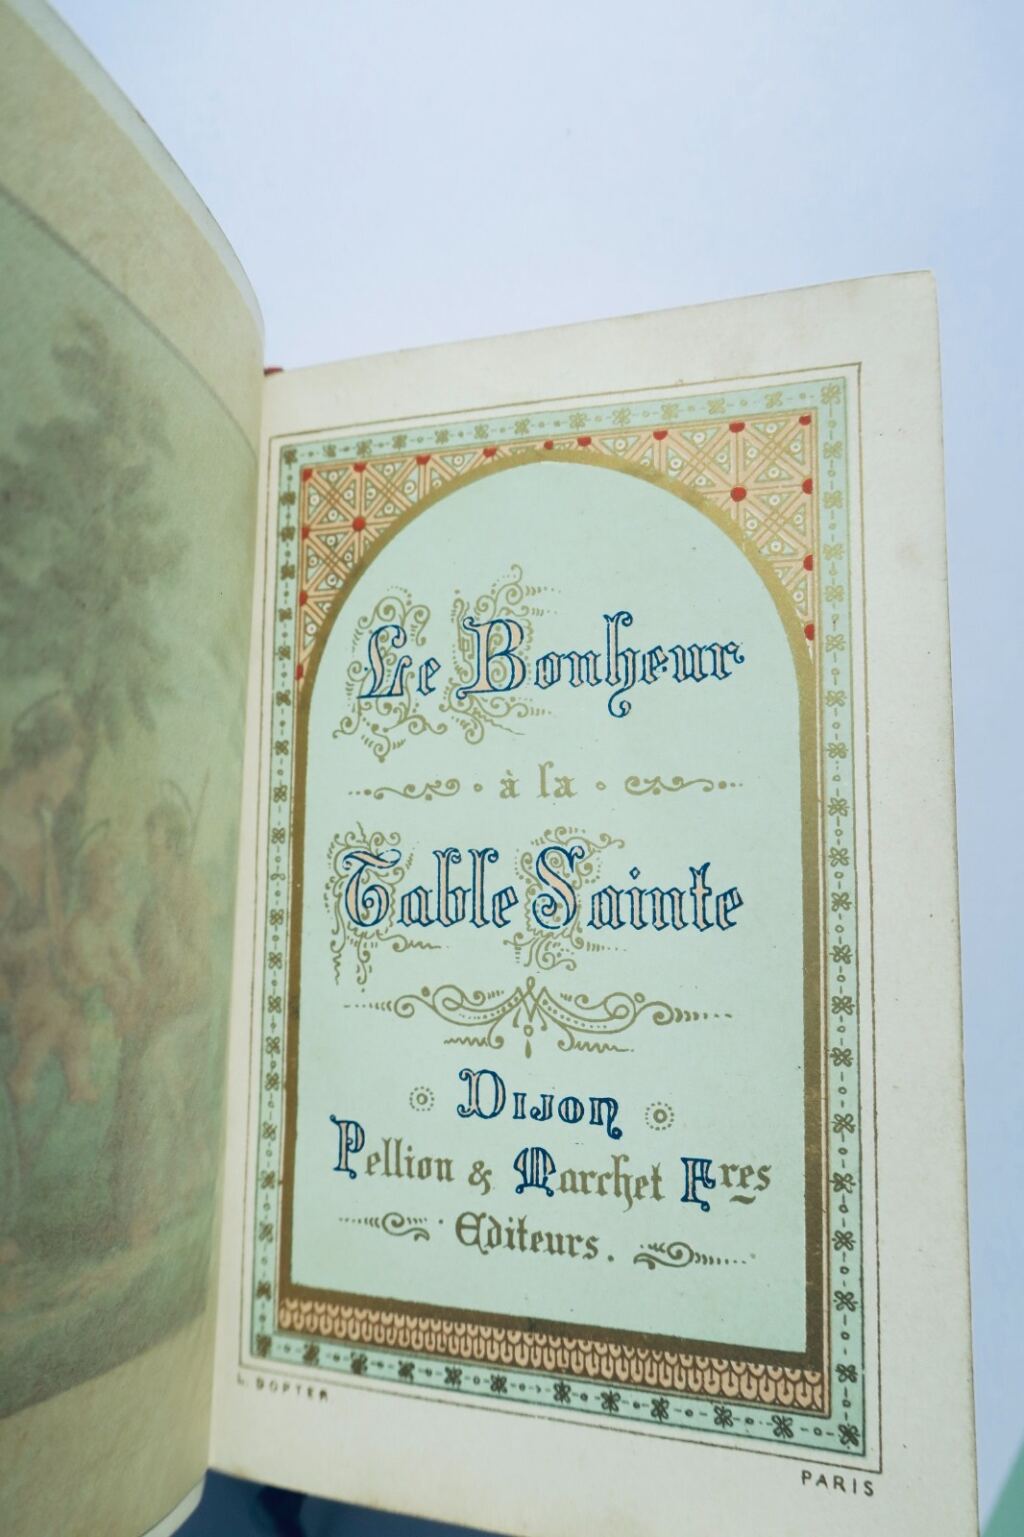 Le Bonheur
à la
Table Sainte
Dijon
Pellion & Marchet Fres
Editeurs.
L. DOPTER
PARIS